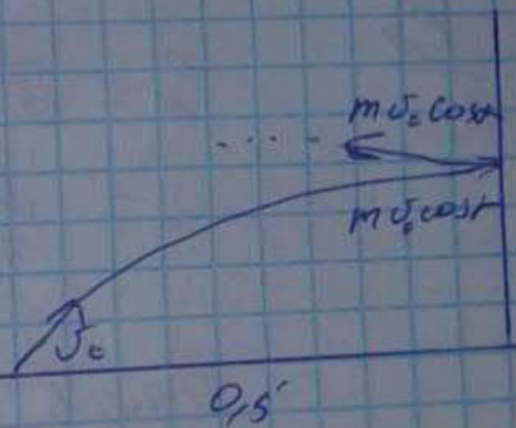 mυ₀ cosα
mυ₀ cosα
υ₀
0,5